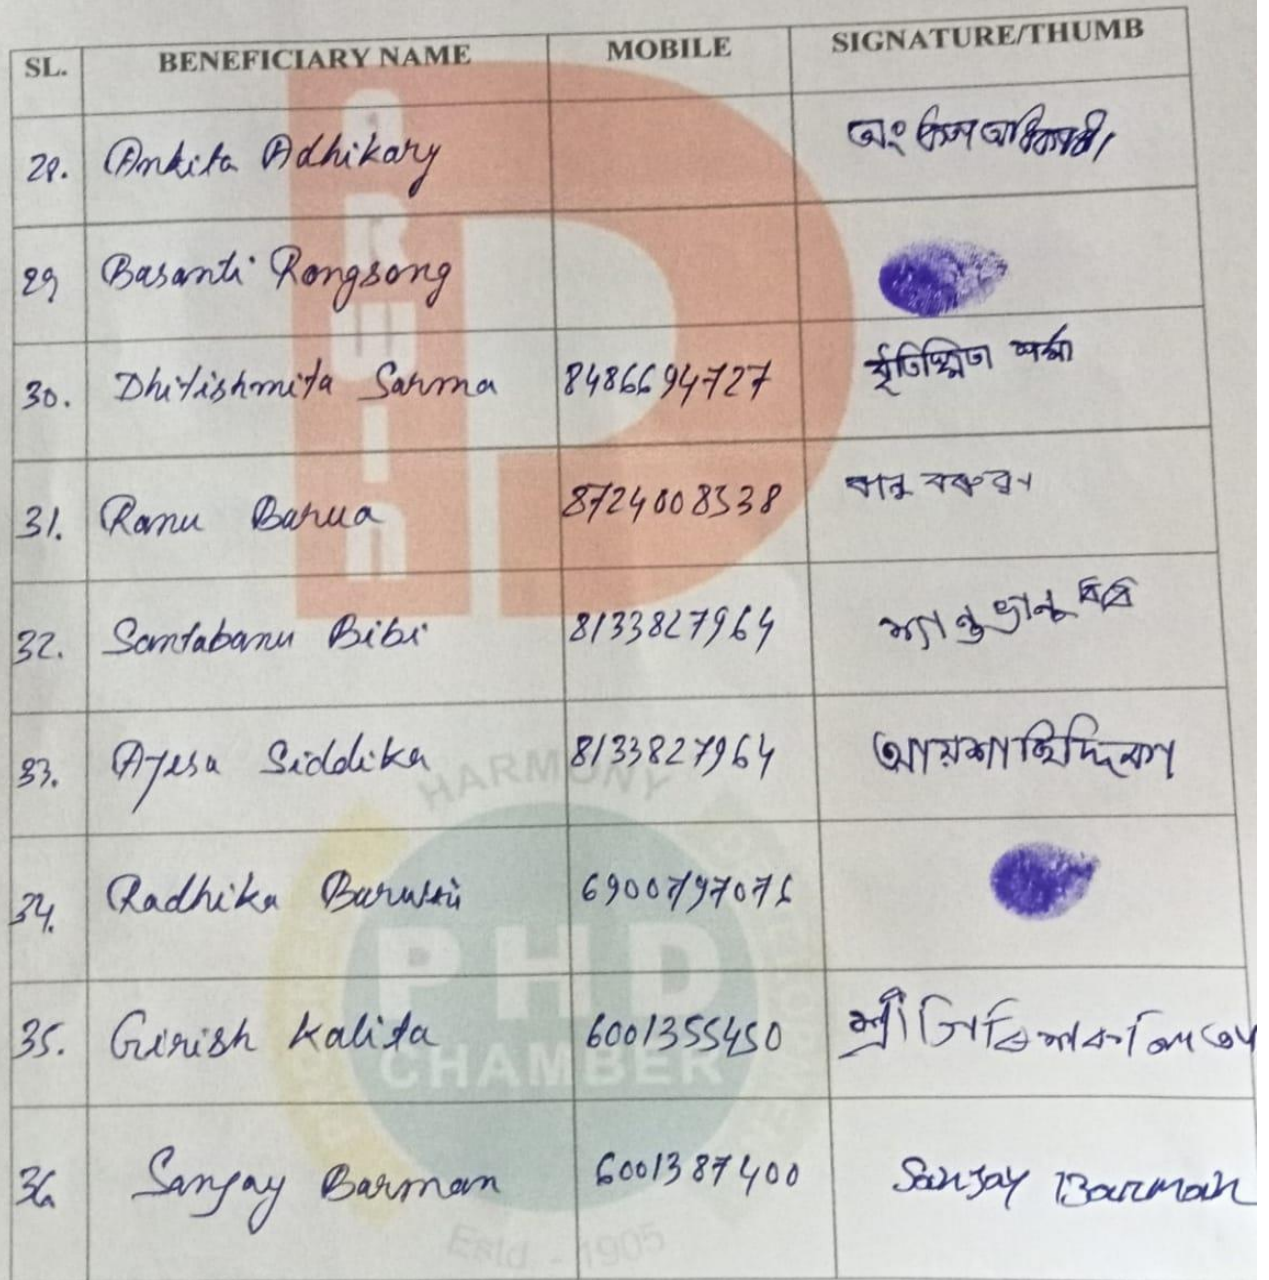 SL. BENEFICIARY NAME MOBILE SIGNATURE/THUMB
28. Ankita Adhikary
29 Basanti Rongsong
30. Dhitishmita Sarma 8486694727
31. Ranu Barua 8724008538 ৰানু বৰুৱা
32. Santabanu Bibi 8133827964
33. Ayesa Siddika 8133827964 আয়শা ছিদ্দিকা
34. Radhika 6900797076
35. Girish Kalita 6001355450
36 Sanjay Barman 6001387400 Sanjay Barman
ARWIN
HARMONY
PHD
CHAMBER
Estd. - 1905